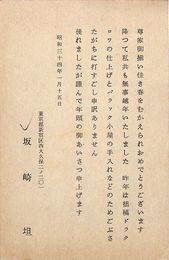 尊家御揃い佳き春をむかえられおめでとうございます
降つて私共も無事越年いたしました 昨年は 拙稿ドラク
ロワの仕上げとバラック小屋の手入れなどのためごぶさ
たがちに打すごし申訳ありません
後れましたが謹んで年頭の御あいさつ申上げます
昭和三十四年一月十五日
東京都新宿区西大久保二ノ二〇一
坂崎 坦